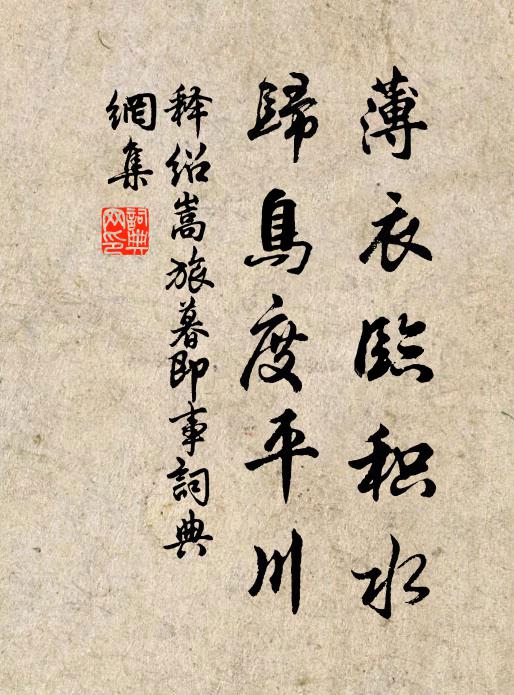 薄衣臨积水
歸鳥度平川
释绍嵩旅暮即事詞典
網集
詞典
网印